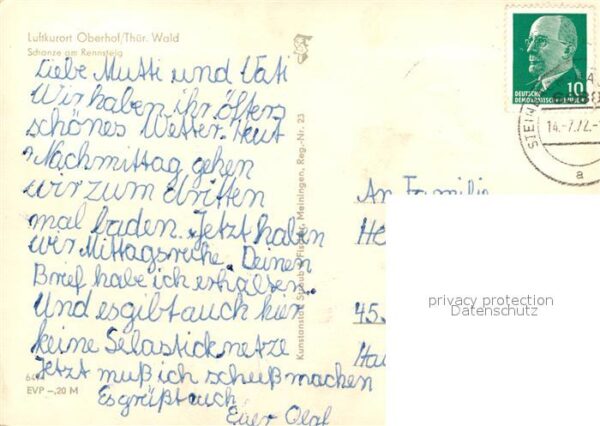 Luftkurort Oberhof/Thür. Wald
Schanze am Rennsteig
Liebe Mutti und Vati
Wir haben ihr öfters
schönes Wetter. Heut
Nachmittag gehen
wir zum dritten
mal baden. Jetzt haben
wir Mittagsruhe. Deinen
Brief habe ich erhalten.
Und es gibt auch hier
keine Selastick netze
Jetzt muß ich schluß machen
Es grüßt auch
Euer Olaf
EVP –,20 M
Kunstanstalt Straub & Fischer, Meiningen, Reg.-Nr. 23
10
DEUTSCHE
DEMOKRATISCHE
STEIN
14.-7.72.-
a
An Familie
HE
45
Hau
privacy protection
Datenschutz